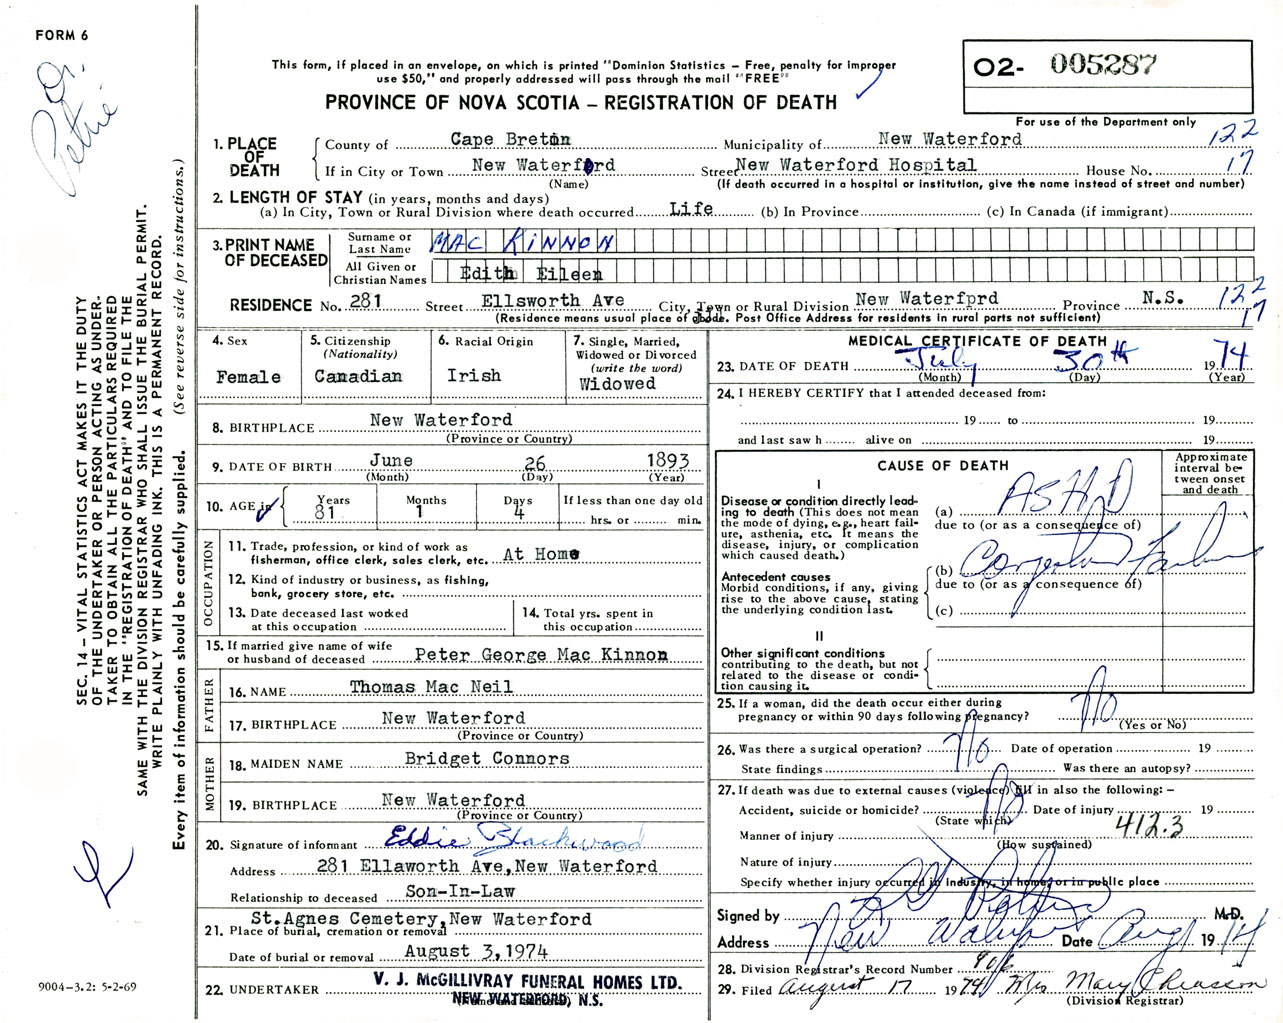 FORM 6
Dr. Petrie
This form, if placed in an envelope, on which is printed "Dominion Statistics – Free, penalty for improper
use $50," and properly addressed will pass through the mail "FREE"
PROVINCE OF NOVA SCOTIA – REGISTRATION OF DEATH
02- 005287
For use of the Department only
1. PLACE OF DEATH
County of Cape Breton Municipality of New Waterford 122
If in City or Town New Waterford Street New Waterford Hospital House No. 17
(Name) (If death occurred in a hospital or institution, give the name instead of street and number)
2. LENGTH OF STAY (in years, months and days)
(a) In City, Town or Rural Division where death occurred Life (b) In Province (c) In Canada (if immigrant)
3. PRINT NAME OF DECEASED
Surname or Last Name MAC KINNON
All Given or Christian Names Edith Eileen
RESIDENCE No. 281 Street Ellsworth Ave City, Town or Rural Division New Waterfprd Province N.S. 122
17
(Residence means usual place of abode. Post Office Address for residents in rural parts not sufficient)
4. Sex Female
5. Citizenship (Nationality) Canadian
6. Racial Origin Irish
7. Single, Married, Widowed or Divorced (write the word) Widowed
8. BIRTHPLACE New Waterford
(Province or Country)
9. DATE OF BIRTH June 26 1893
(Month) (Day) (Year)
10. AGE in Years 81 Months 1 Days 4 If less than one day old hrs. or min.
OCCUPATION
11. Trade, profession, or kind of work as
fisherman, office clerk, sales clerk, etc. At Home
12. Kind of industry or business, as fishing,
bank, grocery store, etc.
13. Date deceased last worked at this occupation
14. Total yrs. spent in this occupation
15. If married give name of wife
or husband of deceased Peter George Mac Kinnon
FATHER
16. NAME Thomas Mac Neil
17. BIRTHPLACE New Waterford
(Province or Country)
MOTHER
18. MAIDEN NAME Bridget Connors
19. BIRTHPLACE New Waterford
(Province or Country)
20. Signature of informant Eddie Blackwood
Address 281 Ellaworth Ave, New Waterford
Relationship to deceased Son-In-Law
St. Agnes Cemetery, New Waterford
21. Place of burial, cremation or removal
Date of burial or removal August 3, 1974
22. UNDERTAKER V. J. McGILLIVRAY FUNERAL HOMES LTD.
NEW WATERFORD, N.S.
MEDICAL CERTIFICATE OF DEATH
23. DATE OF DEATH July 30th 1974
(Month) (Day) (Year)
24. I HEREBY CERTIFY that I attended deceased from:
19 to 19
and last saw h alive on 19
CAUSE OF DEATH
Approximate interval between onset and death
I
Disease or condition directly lead-
ing to death (This does not mean
the mode of dying, e.g., heart fail-
ure, asthenia, etc. It means the
disease, injury, or complication
which caused death.)
(a) ASHD
due to (or as a consequence of)
Antecedent causes
Morbid conditions, if any, giving
rise to the above cause, stating
the underlying condition last.
(b) Congestive Failure
due to (or as a consequence of)
(c)
II
Other significant conditions
contributing to the death, but not
related to the disease or condi-
tion causing it.
25. If a woman, did the death occur either during
pregnancy or within 90 days following pregnancy? No
(Yes or No)
26. Was there a surgical operation? No Date of operation 19
State findings Was there an autopsy?
27. If death was due to external causes (violence) fill in also the following: –
Accident, suicide or homicide? No Date of injury 19
(State which)
412.3
Manner of injury
(How sustained)
Nature of injury
Specify whether injury occurred in Industry, in home, or in public place
Signed by M.D.
Address New Waterford Date Aug 1 1974
28. Division Registrar's Record Number 906
29. Filed August 17 1974 Mrs Mary Chiasson
(Division Registrar)
SEC. 14 – VITAL STATISTICS ACT MAKES IT THE DUTY
OF THE UNDERTAKER OR PERSON ACTING AS UNDER-
TAKER TO OBTAIN ALL THE PARTICULARS REQUIRED
IN THE "REGISTRATION OF DEATH" AND TO FILE THE
SAME WITH THE DIVISION REGISTRAR WHO SHALL ISSUE THE BURIAL PERMIT.
WRITE PLAINLY WITH UNFADING INK. THIS IS A PERMANENT RECORD.
Every item of information should be carefully supplied. (See reverse side for instructions.)
9004-3.2: 5-2-69